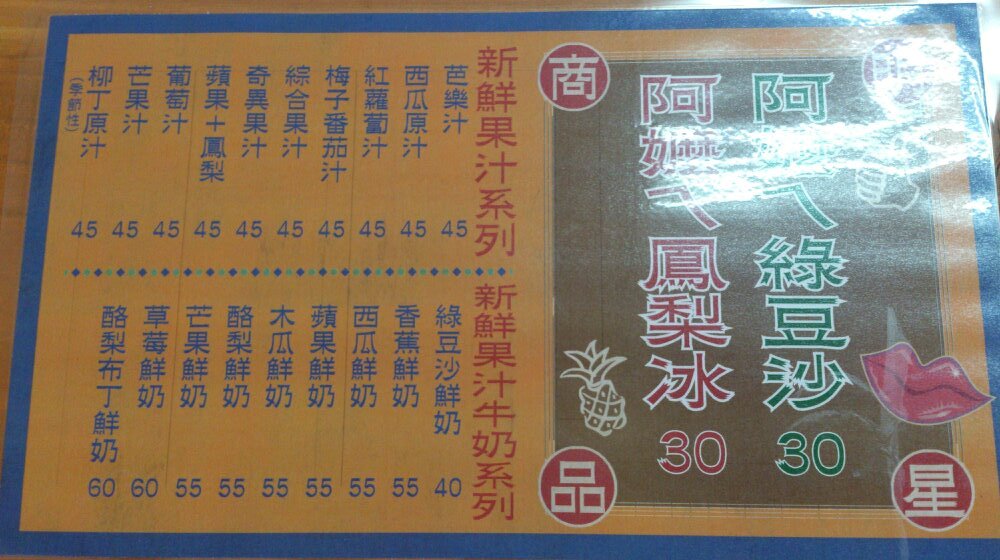 星
商
品
阿嬤ㄟ綠豆沙 30
阿嬤ㄟ鳳梨冰 30
新鮮果汁系列
芭樂汁 45
西瓜原汁 45
紅蘿蔔汁 45
梅子番茄汁 45
綜合果汁 45
奇異果汁 45
蘋果+鳳梨 45
葡萄汁 45
芒果汁 45
柳丁原汁 45
(季節性)
新鮮果汁牛奶系列
綠豆沙鮮奶 40
香蕉鮮奶 55
西瓜鮮奶 55
蘋果鮮奶 55
木瓜鮮奶 55
酪梨鮮奶 55
芒果鮮奶 55
草莓鮮奶 60
酪梨布丁鮮奶 60